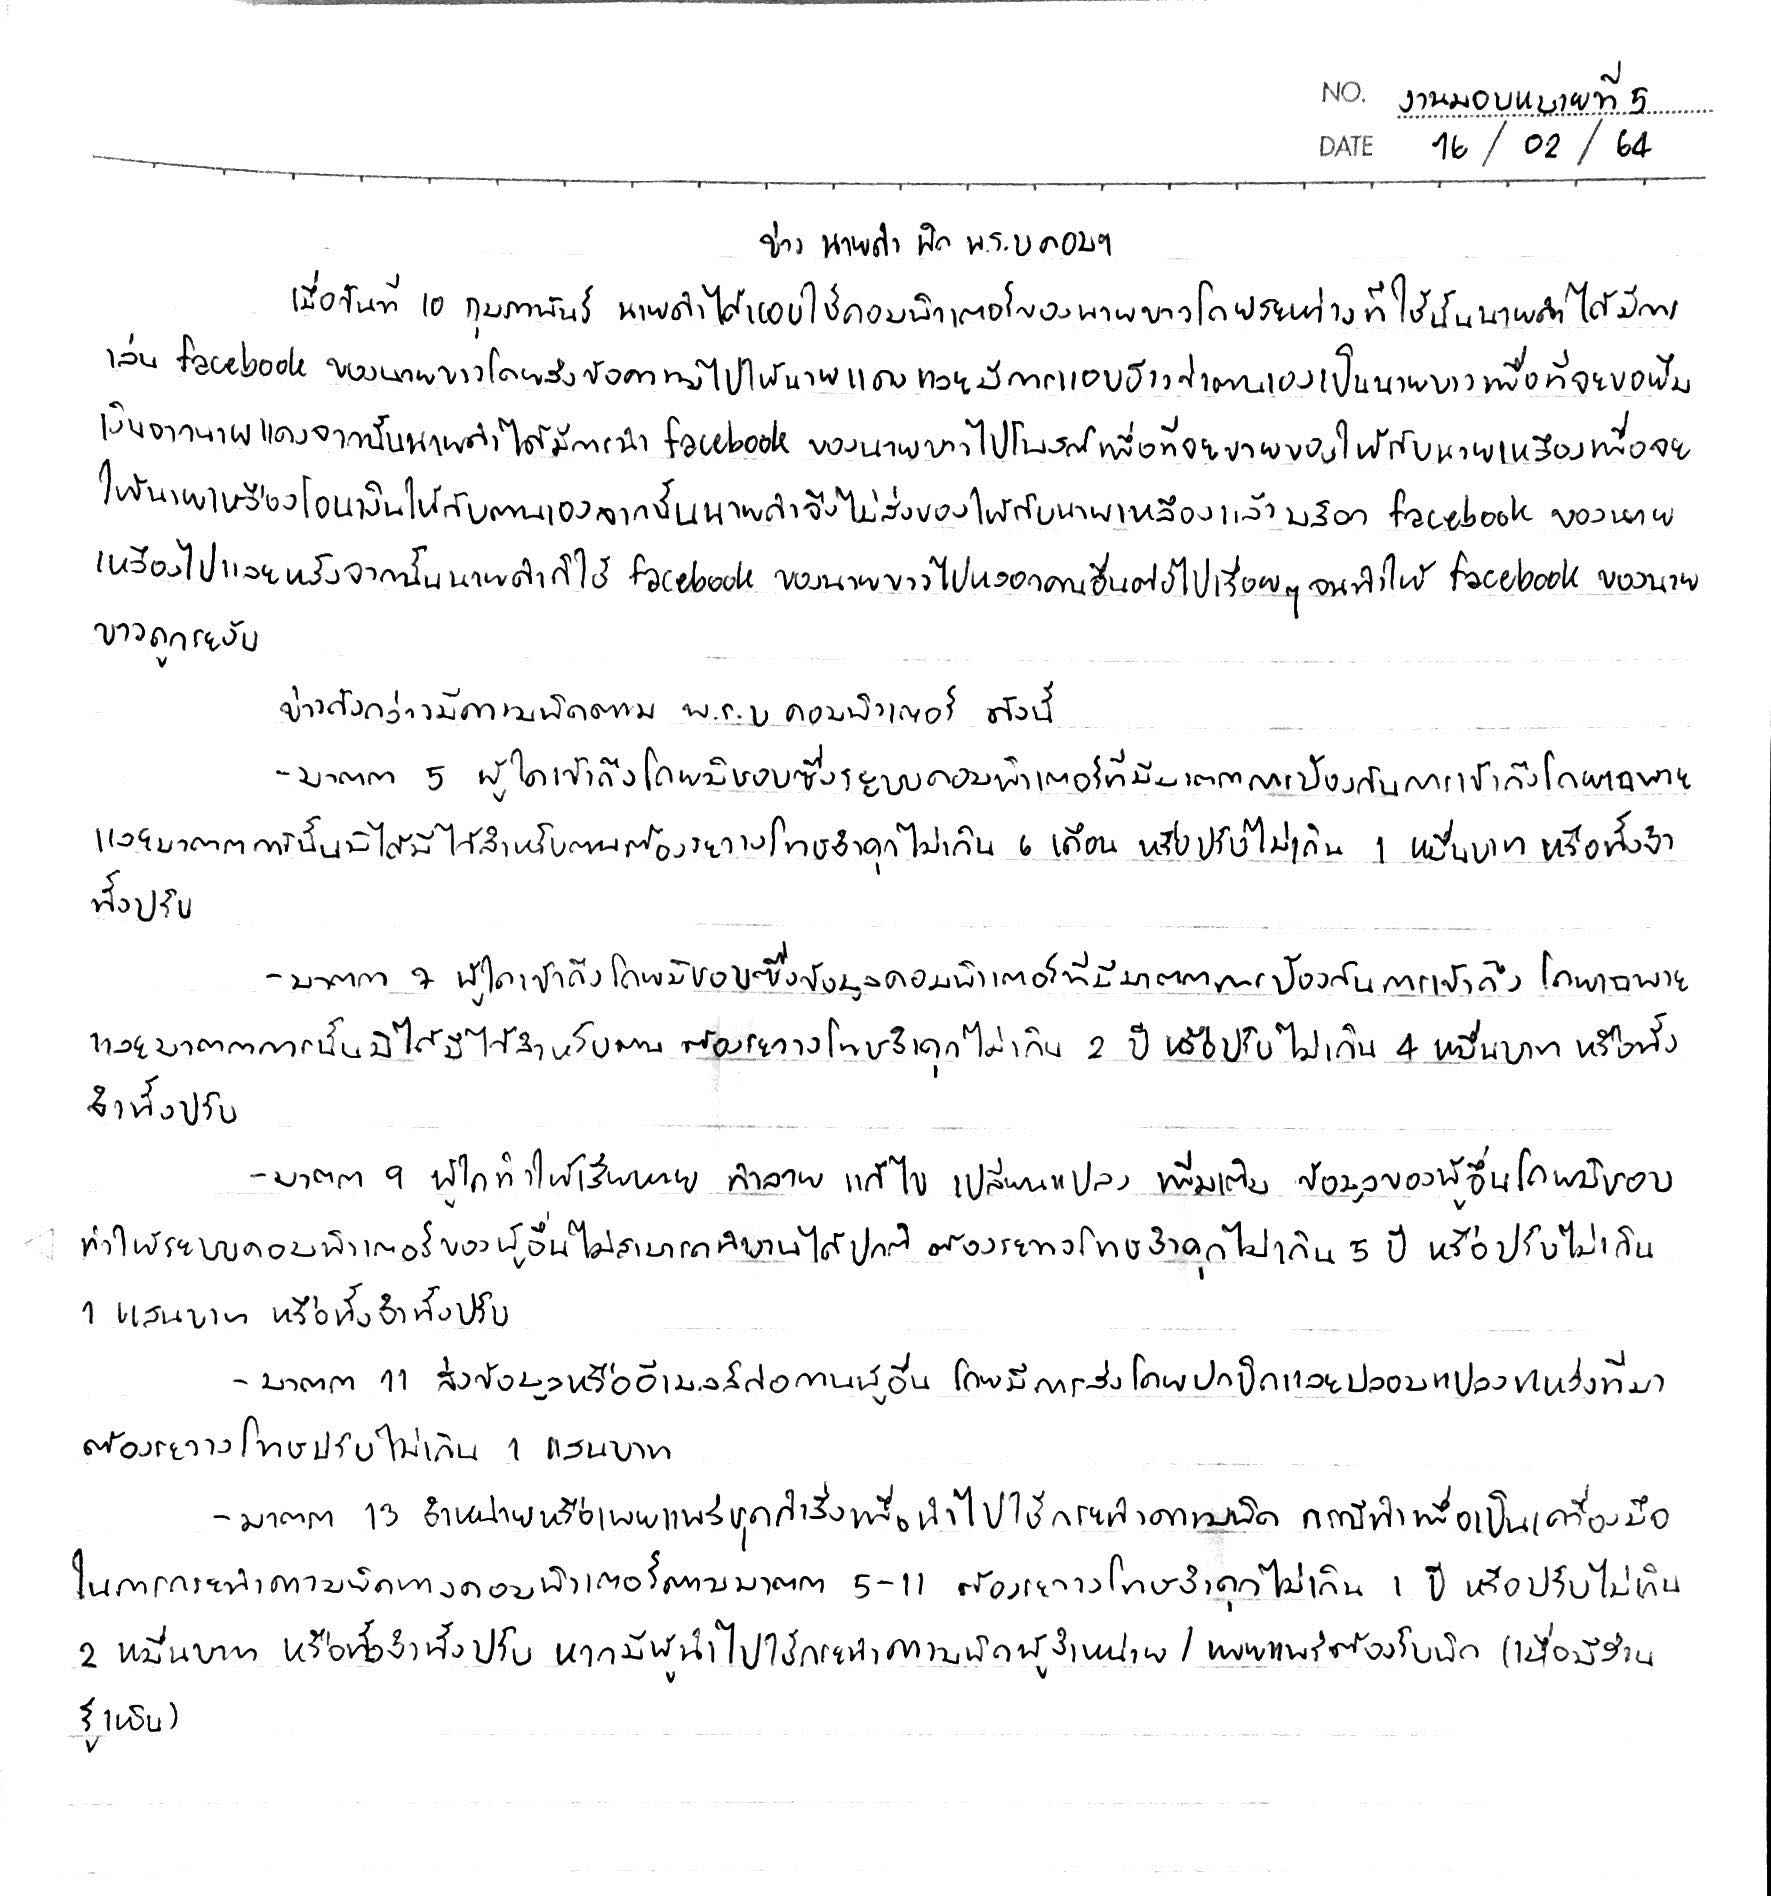 NO. งานมอบหมายที่ 5
DATE 16 / 02 / 64
ข่าว นายดำ ผิด พ.ร.บ คอมฯ
เมื่อวันที่ 10 กุมภาพันธ์ นายดำได้แอบใช้คอมพิวเตอร์ของนายขาวโดยระหว่างที่ใช้นั้นนายดำได้มีการ
เล่น facebook ของนายขาวโดยส่งข้อความไปให้นายแดงและมีการแอบอ้างว่าตนเองเป็นนายขาวเพื่อที่จะขอยืม
เงินจากนายแดงจากนั้นนายดำได้มีการนำ facebook ของนายขาวไปโพสต์เพื่อที่จะขายของให้กับนายเหลืองเพื่อจะ
ให้นายเหลืองโอนเงินให้กับตนเองจากนั้นนายดำจึงไม่ส่งของให้กับนายเหลืองแล้วบล็อก facebook ของนาย
เหลืองไปและหลังจากนั้นนายดำก็ใช้ facebook ของนายขาวไปหลอกคนอื่นต่อไปเรื่อยๆ จนทำให้ facebook ของนาย
ขาวถูกระงับ
ข่าวดังกล่าวมีความผิดตาม พ.ร.บ คอมพิวเตอร์ ดังนี้
-มาตรา 5 ผู้ใดเข้าถึงโดยมิชอบซึ่งระบบคอมพิวเตอร์ที่มีมาตรการป้องกันการเข้าถึงโดยเฉพาะ
และมาตรการนั้นมิได้มีไว้สำหรับตนต้องระวางโทษจำคุกไม่เกิน 6 เดือน หรือปรับไม่เกิน 1 หมื่นบาท หรือทั้งจำ
ทั้งปรับ
-มาตรา 7 ผู้ใดเข้าถึงโดยมิชอบซึ่งข้อมูลคอมพิวเตอร์ที่มีมาตรการป้องกันการเข้าถึง โดยเฉพาะ
และมาตรการนั้นมิได้มีไว้สำหรับตน ต้องระวางโทษจำคุกไม่เกิน 2 ปี หรือปรับไม่เกิน 4 หมื่นบาท หรือทั้ง
จำทั้งปรับ
-มาตรา 9 ผู้ใดทำให้เสียหาย ทำลาย แก้ไข เปลี่ยนแปลง เพิ่มเติม ข้อมูลของผู้อื่นโดยมิชอบ
ทำให้ระบบคอมพิวเตอร์ของผู้อื่นไม่สามารถทำงานได้ปกติ ต้องระวางโทษจำคุกไม่เกิน 5 ปี หรือปรับไม่เกิน
1 แสนบาท หรือทั้งจำทั้งปรับ
-มาตรา 11 ส่งข้อมูลหรืออีเมลล์ก่อกวนผู้อื่น โดยมีการส่งโดยปกปิดและปลอมแปลงแหล่งที่มา
ต้องระวางโทษปรับไม่เกิน 1 แสนบาท
-มาตรา 13 จำหน่ายหรือเผยแพร่ชุดคำสั่งเพื่อนำไปใช้กระทำความผิด กรณีทำเพื่อเป็นเครื่องมือ
ในการกระทำความผิดทางคอมพิวเตอร์ตามมาตรา 5-11 ต้องระวางโทษจำคุกไม่เกิน 1 ปี หรือปรับไม่เกิน
2 หมื่นบาท หรือทั้งจำทั้งปรับ หากมีผู้นำไปใช้กระทำความผิดผู้จำหน่าย / เผยแพร่ต้องรับผิด (เมื่อมีส่วน
รู้เห็น)